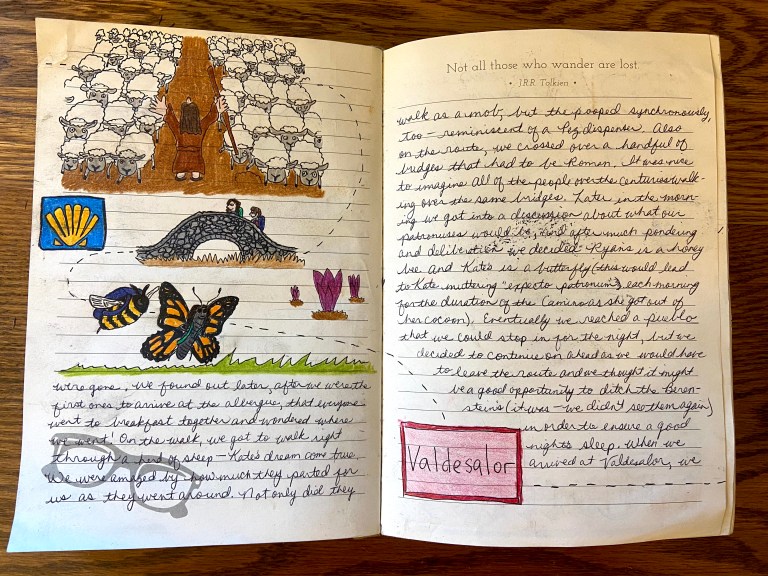 were gone. We found out later, after we were the
first ones to arrive at the albergue, that everyone
went to breakfast together and wondered where
we went! On the walk, we got to walk right
through a herd of sheep - Kate's dream come true.
We were amazed by how much they parted for
us as they went around. Not only did they
Not all those who wander are lost.
• J.R.R. Tolkien •
walk as a mob, but the pooped synchronously,
too - reminiscent of a Pez dispenser. Also
on the route, we crossed over a handful of
bridges that had to be Roman. It was nice
to imagine all of the people over the centuries walk-
ing over the same bridges. Later in the morn-
ing we got into a discussion about what our
patronuses would be, and after much pondering
and deliberation we decided Ryan's is a honey
bee and Kate's is a butterfly (this would lead
to Kate muttering "expecto patronum" each morning
for the duration of the Camino as she got out of
her cocoon). Eventually we reached a pueblo
that we could stop in for the night, but we
decided to continue on ahead as we would have
to leave the route and we thought it might
be a good opportunity to ditch the Beren-
steins (it was - we didn't see them again)
in order to ensure a good
nights sleep. When we
arrived at Valdesalor, we
Valdesalor